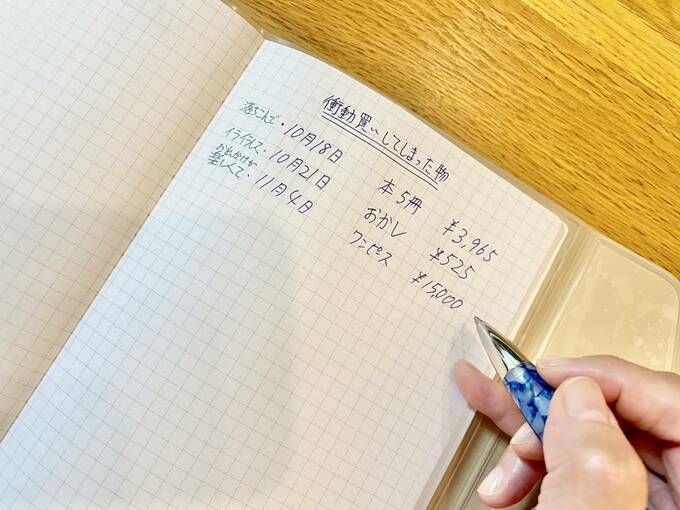 衝動買いしてしまった物
落ちこんで・10月18日 本5冊 ¥3,965
イライラして・10月21日 おかし ¥525
おでかけが
楽しくて・11月4日 ワンピース ¥15,000